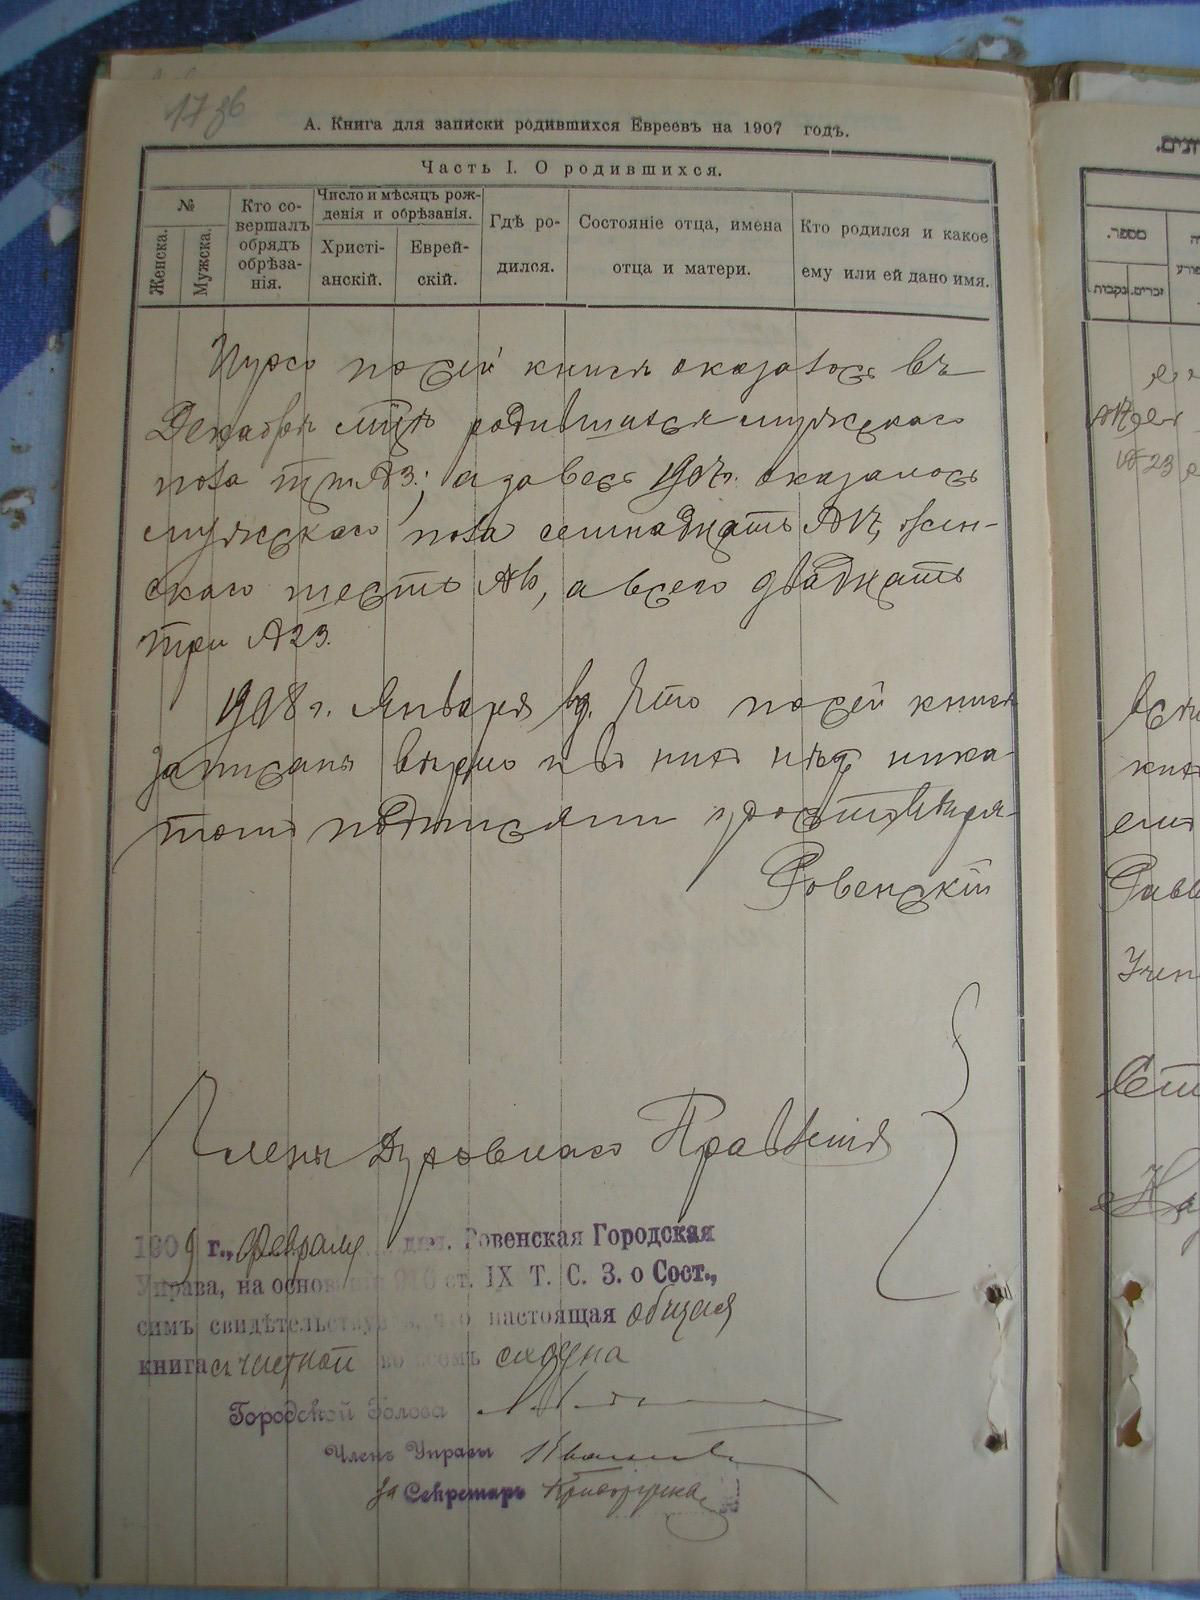 А. Книга для записки родившихся Евреевъ на 1907 годъ.
Часть I. О родившихся.
№
Женска.
Мужска.
Кто со-
вершалъ
обрядъ
обрѣза-
нія.
Число и мѣсяцъ рож-
денія и обрѣзанія.
Христі-
анскій.
Еврей-
скій.
Гдѣ ро-
дился.
Состояніе отца, имена
отца и матери.
Кто родился и какое
ему или ей дано имя.
по сей книги оказалось въ
Декабрѣ родившихся мужскаго
пола три №3; а за весь 1907г. оказалось
мужскаго пола семнадцать №17, жен-
скаго шесть №6, а всего двадцать
три №23.
1908 г. Января Что по сей книги
записаны вѣрно и въ ней нѣтъ ника-
подписями
Ровенскій
Члены Духовнаго Правленія
1909 г., Февраля дня. Ровенская Городская
Управа, на основаніи 916 ст. IX Т. С. З. о Сост.,
симъ свидѣтельствуетъ, что настоящая общая
книга съ чистной во всемъ сходна
Городской Голова
Членъ Управы
За Секретарь
מספר.
זכרים.
נקבות